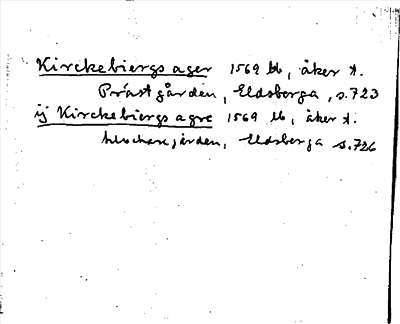 Kirckebiergs ager 1569 bb, åker t.
Prästgården, Eldsberga, s.723
ij Kirckebiergs agre 1569 bb, åker t.
klockaregården, Eldsberga s.726